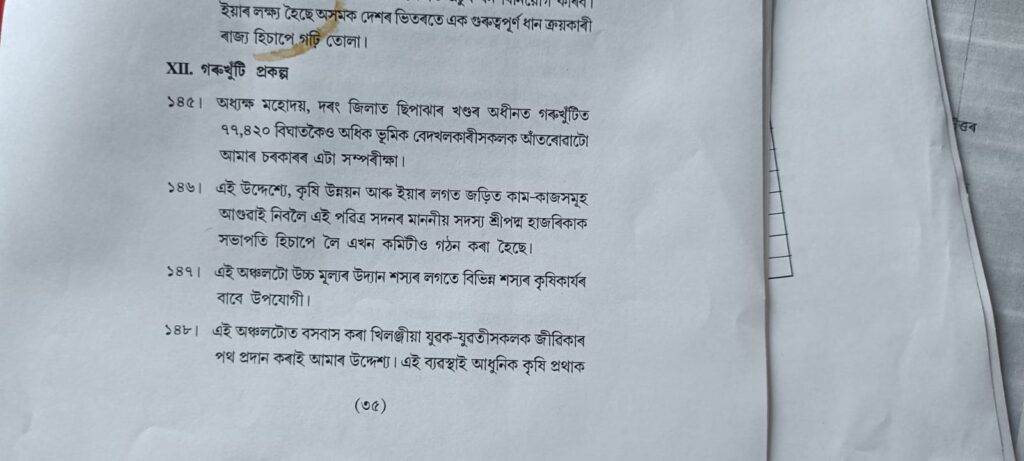 ইয়াৰ লক্ষ্য হৈছে অসমক দেশৰ ভিতৰতে এক গুৰুত্বপূৰ্ণ ধান ক্ৰয়কাৰী
ৰাজ্য হিচাপে গঢ়ি তোলা।
XII. গৰুখুঁটি প্ৰকল্প
১৪৫। অধ্যক্ষ মহোদয়, দৰং জিলাত ছিপাঝাৰ খণ্ডৰ অধীনত গৰুখুঁটিত
৭৭,৪২০ বিঘাতকৈও অধিক ভূমিক বেদখলকাৰীসকলক আঁতৰোৱাটো
আমাৰ চৰকাৰৰ এটা সম্পৰীক্ষা।
১৪৬। এই উদ্দেশ্যে, কৃষি উন্নয়ন আৰু ইয়াৰ লগত জড়িত কাম-কাজসমূহ
আগুৱাই নিবলৈ এই পবিত্ৰ সদনৰ মাননীয় সদস্য শ্ৰীপদ্ম হাজৰিকাক
সভাপতি হিচাপে লৈ এখন কমিটীও গঠন কৰা হৈছে।
১৪৭। এই অঞ্চলটো উচ্চ মূল্যৰ উদ্যান শস্যৰ লগতে বিভিন্ন শস্যৰ কৃষিকাৰ্যৰ
বাবে উপযোগী।
১৪৮। এই অঞ্চলটোত বসবাস কৰা খিলঞ্জীয়া যুৱক-যুৱতীসকলক জীৱিকাৰ
পথ প্ৰদান কৰাই আমাৰ উদ্দেশ্য। এই ব্যৱস্থাই আধুনিক কৃষি প্ৰথাক
(৩৫)